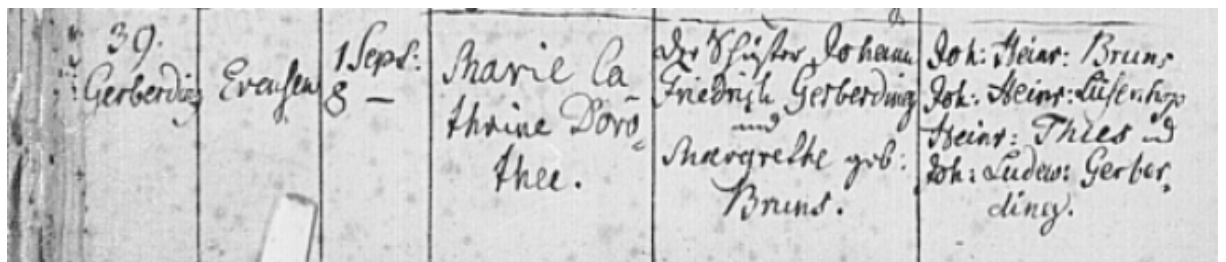 39.
Gerberding
Evensen
1 Sept:
8 —
Marie Ca-
thrine Doro-
thee.
Der Schuster Johann
Friedrich Gerberding
und
Margrethe geb:
Bruns.
Joh: Heinr: Bruns
Joh: Heinr:
Heinr: Thies ud
Joh: Ludew: Gerber-
ding.